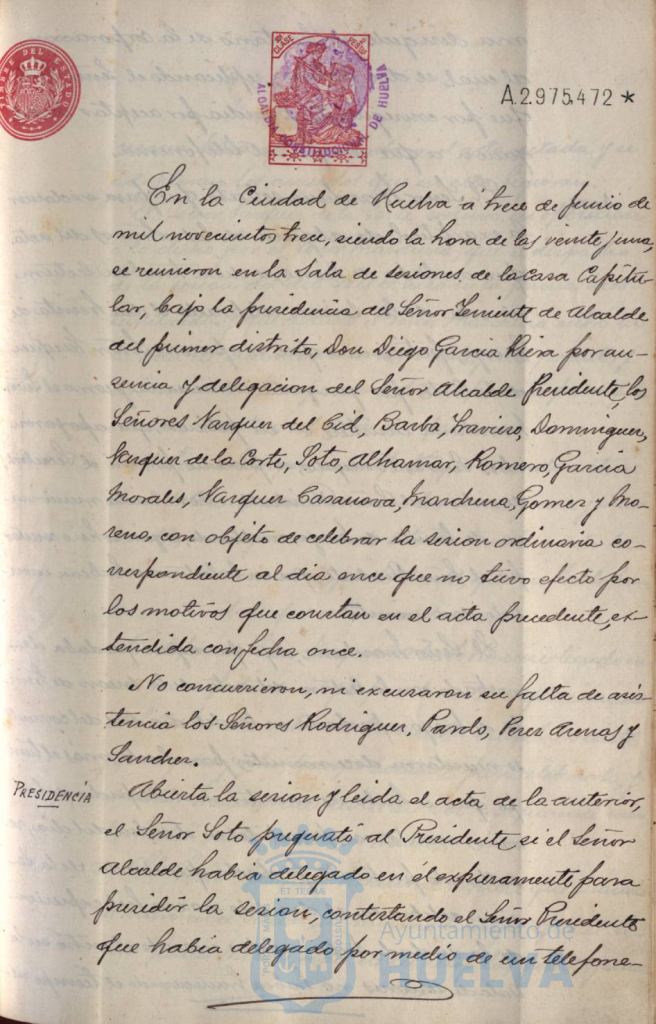 TIMBRE DEL ESTADO
8ª CLASE PESETAS
ALCALDIA CONSTITUCIONAL DE HUELVA
A.2.975.472 *
En la Ciudad de Huelva á trece de Junio de
mil novecientos trece, siendo la hora de las veinte y una,
se reunieron en la Sala de sesiones de la Casa Capitu-
lar, bajo la presidencia del Señor Teniente de Alcalde
del primer distrito, Don Diego Garcia Riera por au-
sencia y delegacion del Señor Alcalde Presidente, los
Señores Vazquez del Cid, Barba, Travieso, Dominguez,
Vazquez de la Corte, Soto, Alhamar, Romero, Garcia
Morales, Vazquez Casanova, Marchena, Gomez y Mo-
reno, con objeto de celebrar la sesion ordinaria co-
rrespondiente al dia once que no tuvo efecto por
los motivos que constan en el acta precedente, ex-
tendida con fecha once.
No concurrieron, ni excusaron su falta de asis-
tencia los Señores Rodriguez, Pardo, Perez Arenas y
Sanchez.
PRESIDENCIA
Abierta la sesion y leida el acta de la anterior,
el Señor Soto preguntó al Presidente si el Señor
Alcalde habia delegado en él expresamente para
presidir la sesion, contestando el Señor Presidente
que habia delegado por medio de un telefone-
Ayuntamiento de
HUELVA